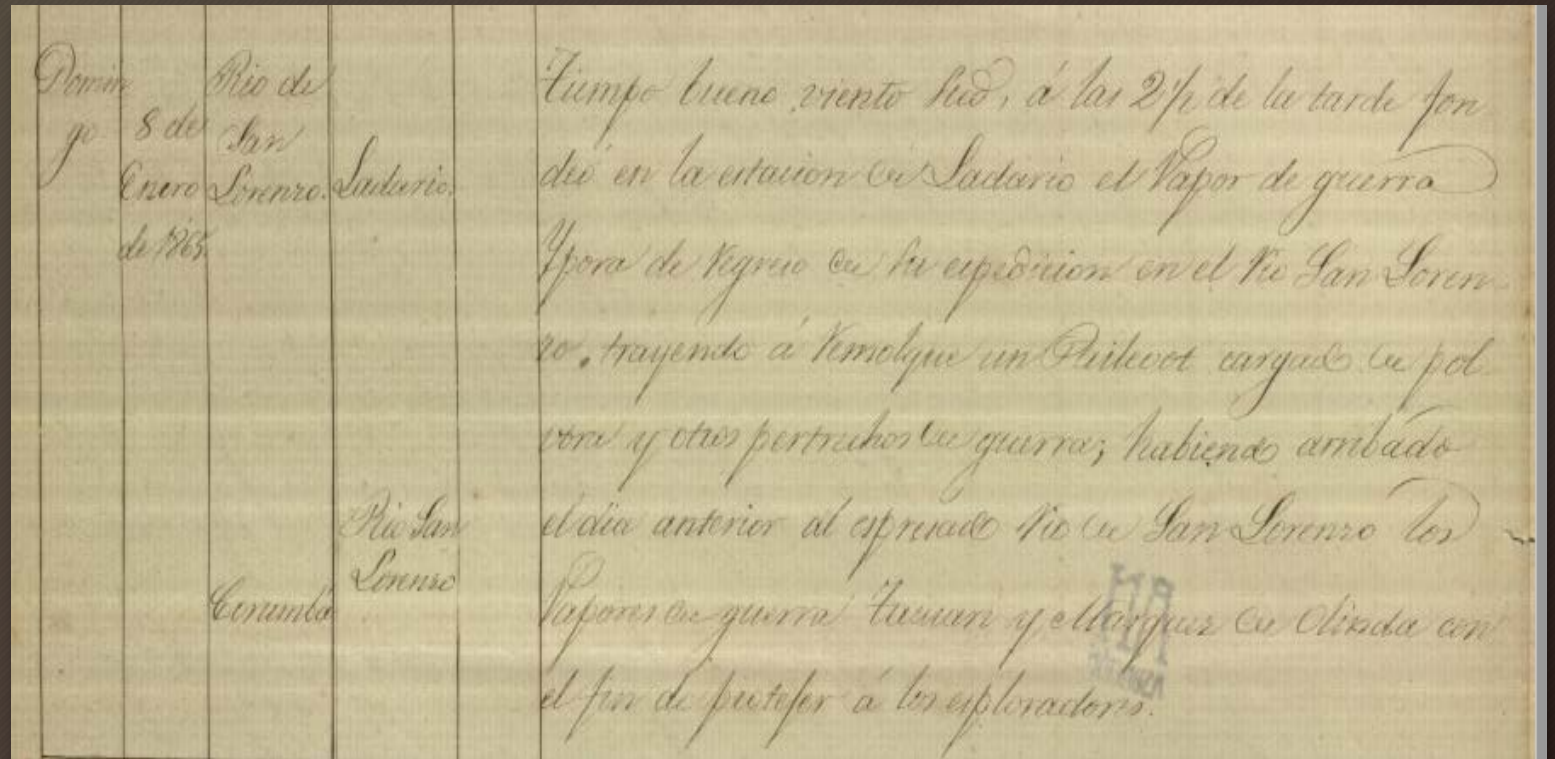 Domin
go
8 de
Enero
de 1865.
Rio de
San
Lorenzo.
Ladario.
Tiempo bueno viento Sud, á las 2½ de la tarde fon
deó en la estacion de Ladario el Vapor de guerra
Ypora de regreso de su espedicion en el Rio San Loren-
zo, trayendo á remolque un Pailevot cargado de pol-
vora y otros pertrechos de guerra; habiendo arribado
Rio San
Lorenzo
Corumbá
el dia anterior al espresado Rio de San Lorenzo los
Vapores de guerra y Marquez de Olinda con
el fin de protejer á los esploradores.